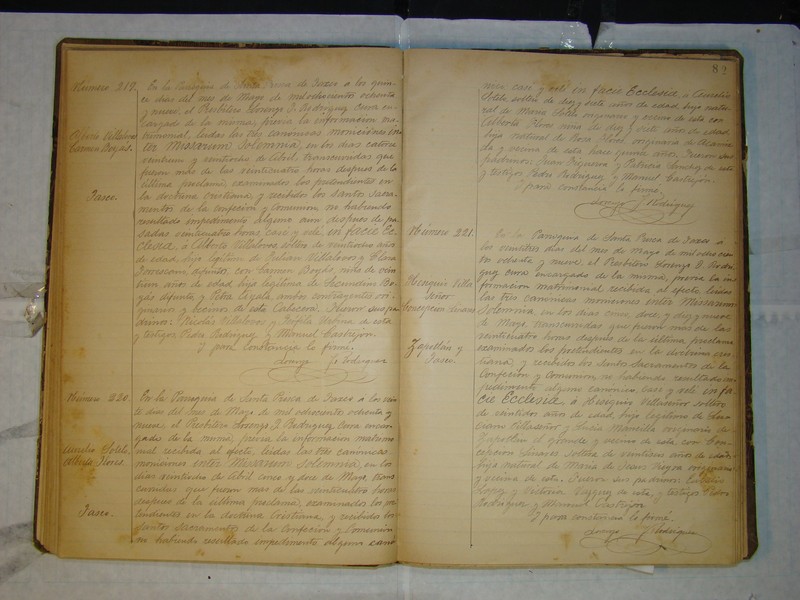 82
Número 219.
Taxco.
En la Parroquia de Santa Prisca de Taxco a los quin-
ce dias del mes de Mayo de mil ochocientos ochenta
y nueve, el Presbítero Lorenzo J. Rodriguez Cura en-
cargado de la misma, previa la informacion ma-
trimonial, leidas las tres canonicas moniciones in-
ter Missarum Solemnia, en los dias catorce
veintiuno y veintiocho de Abril, transcurridas que
fueron mas de las veinticuatro horas despues de la
ultima proclama, examinados los pretendientes en
la doctrina cristiana, y recibidos los Santos Sacra-
mentos de la Confecion y Comunion no habiendo
resultado impedimento alguno aun despues de pa-
sadas veinticuatro horas, casé y velé in facie Ec-
clesia, á Villalovos soltero de veintiocho años
de edad, hijo legitimo de Julian Villalovos y Clara
difuntos, con Carmen Borjas, niña de vein-
tiun años de edad hija legitima de Secundino Bor-
jas difunto, y Petra ambos contrayentes ori-
ginarios y vecinos de esta Cabecera. Fueron sus pa-
drinos: Nicolas Villalovos y Medina de esta
y testigos Pedro Rodriguez, y Manuel Castrejon.
Y para constancia lo firmé.
Lorenzo J. Rodriguez
Número 220.
Aurelio Sotelo,
Flores.
Taxco.
En la Parroquia de Santa Prisca de Taxco á los
dias del mes de Mayo de mil ochocientos ochenta y
nueve, el Presbítero Lorenzo J. Rodriguez Cura encar-
gado de la misma, previa la informacion matrimo-
nial recibida al efecto, leidas las tres canonicas
moniciones inter Missarum Solemnia, en los
dias veintiocho de Abril, cinco y doce de Mayo, trans-
curridas que fueron mas de las veinticuatro horas
despues de la ultima proclama, examinados los pre-
tendientes en la doctrina Cristiana, y recibidos los
Santos Sacramentos de la Confecion y Comunion
no habiendo resultado impedimento alguno canó-
nico casé y velé in facie Ecclesia, a Aurelio
Sotelo soltero de diez y siete años de edad, hijo natu-
ral de Maria Sotelo originario y vecino de esta con
Flores niña de diez y siete años de edad
hija natural de Rosa Flores originaria de
y vecina de esta hace años. Fueron sus
padrinos: Juan Figueroa y Patricia Sanchez de esta
y testigos Pedro Rodriguez y Manuel Castrejon.
Y para constancia lo firmé.
Lorenzo J. Rodriguez
Número 221.
Villa
Señor
Concepcion Linares
Zapotlan y
Taxco.
En la Parroquia de Santa Prisca de Taxco a
los veintitres dias del mes de Mayo de mil ochocien-
tos ochenta y nueve, el Presbítero Lorenzo J. Rodri-
guez Cura encargado de la misma, previa la in-
formacion matrimonial recibida al efecto, leidas
las tres canónicas moniciones inter Missarum
Solemnia, en los dias cinco, doce y diez y nueve
de Mayo, transcurridas que fueron más de las
veinticuatro horas despues de la ultima proclama
examinados los pretendientes en la doctrina cris-
tiana, y recibidos los Santos Sacramentos de la
Confecion y Comunion, no habiendo resultado im-
pedimento alguno canonico, case y velé in fa-
cie Ecclesia, á Villaseñor soltero
de veintidos años de edad, hijo legitimo de
Villaseñor y Lucia Mancilla originario de
Zapotlan el grande y vecino de esta, con Con-
cepcion Linares Soltera de veintiseis años de edad,
hija natural de Maria de Jesus Reyna originaria
y vecina de esta. Fueron sus padrinos:
Lopez y Victoria Vazquez de esta, y testigos Pedro
Rodriguez y Manuel Castrejon
Y para constancia lo firmé.
Lorenzo J. Rodriguez